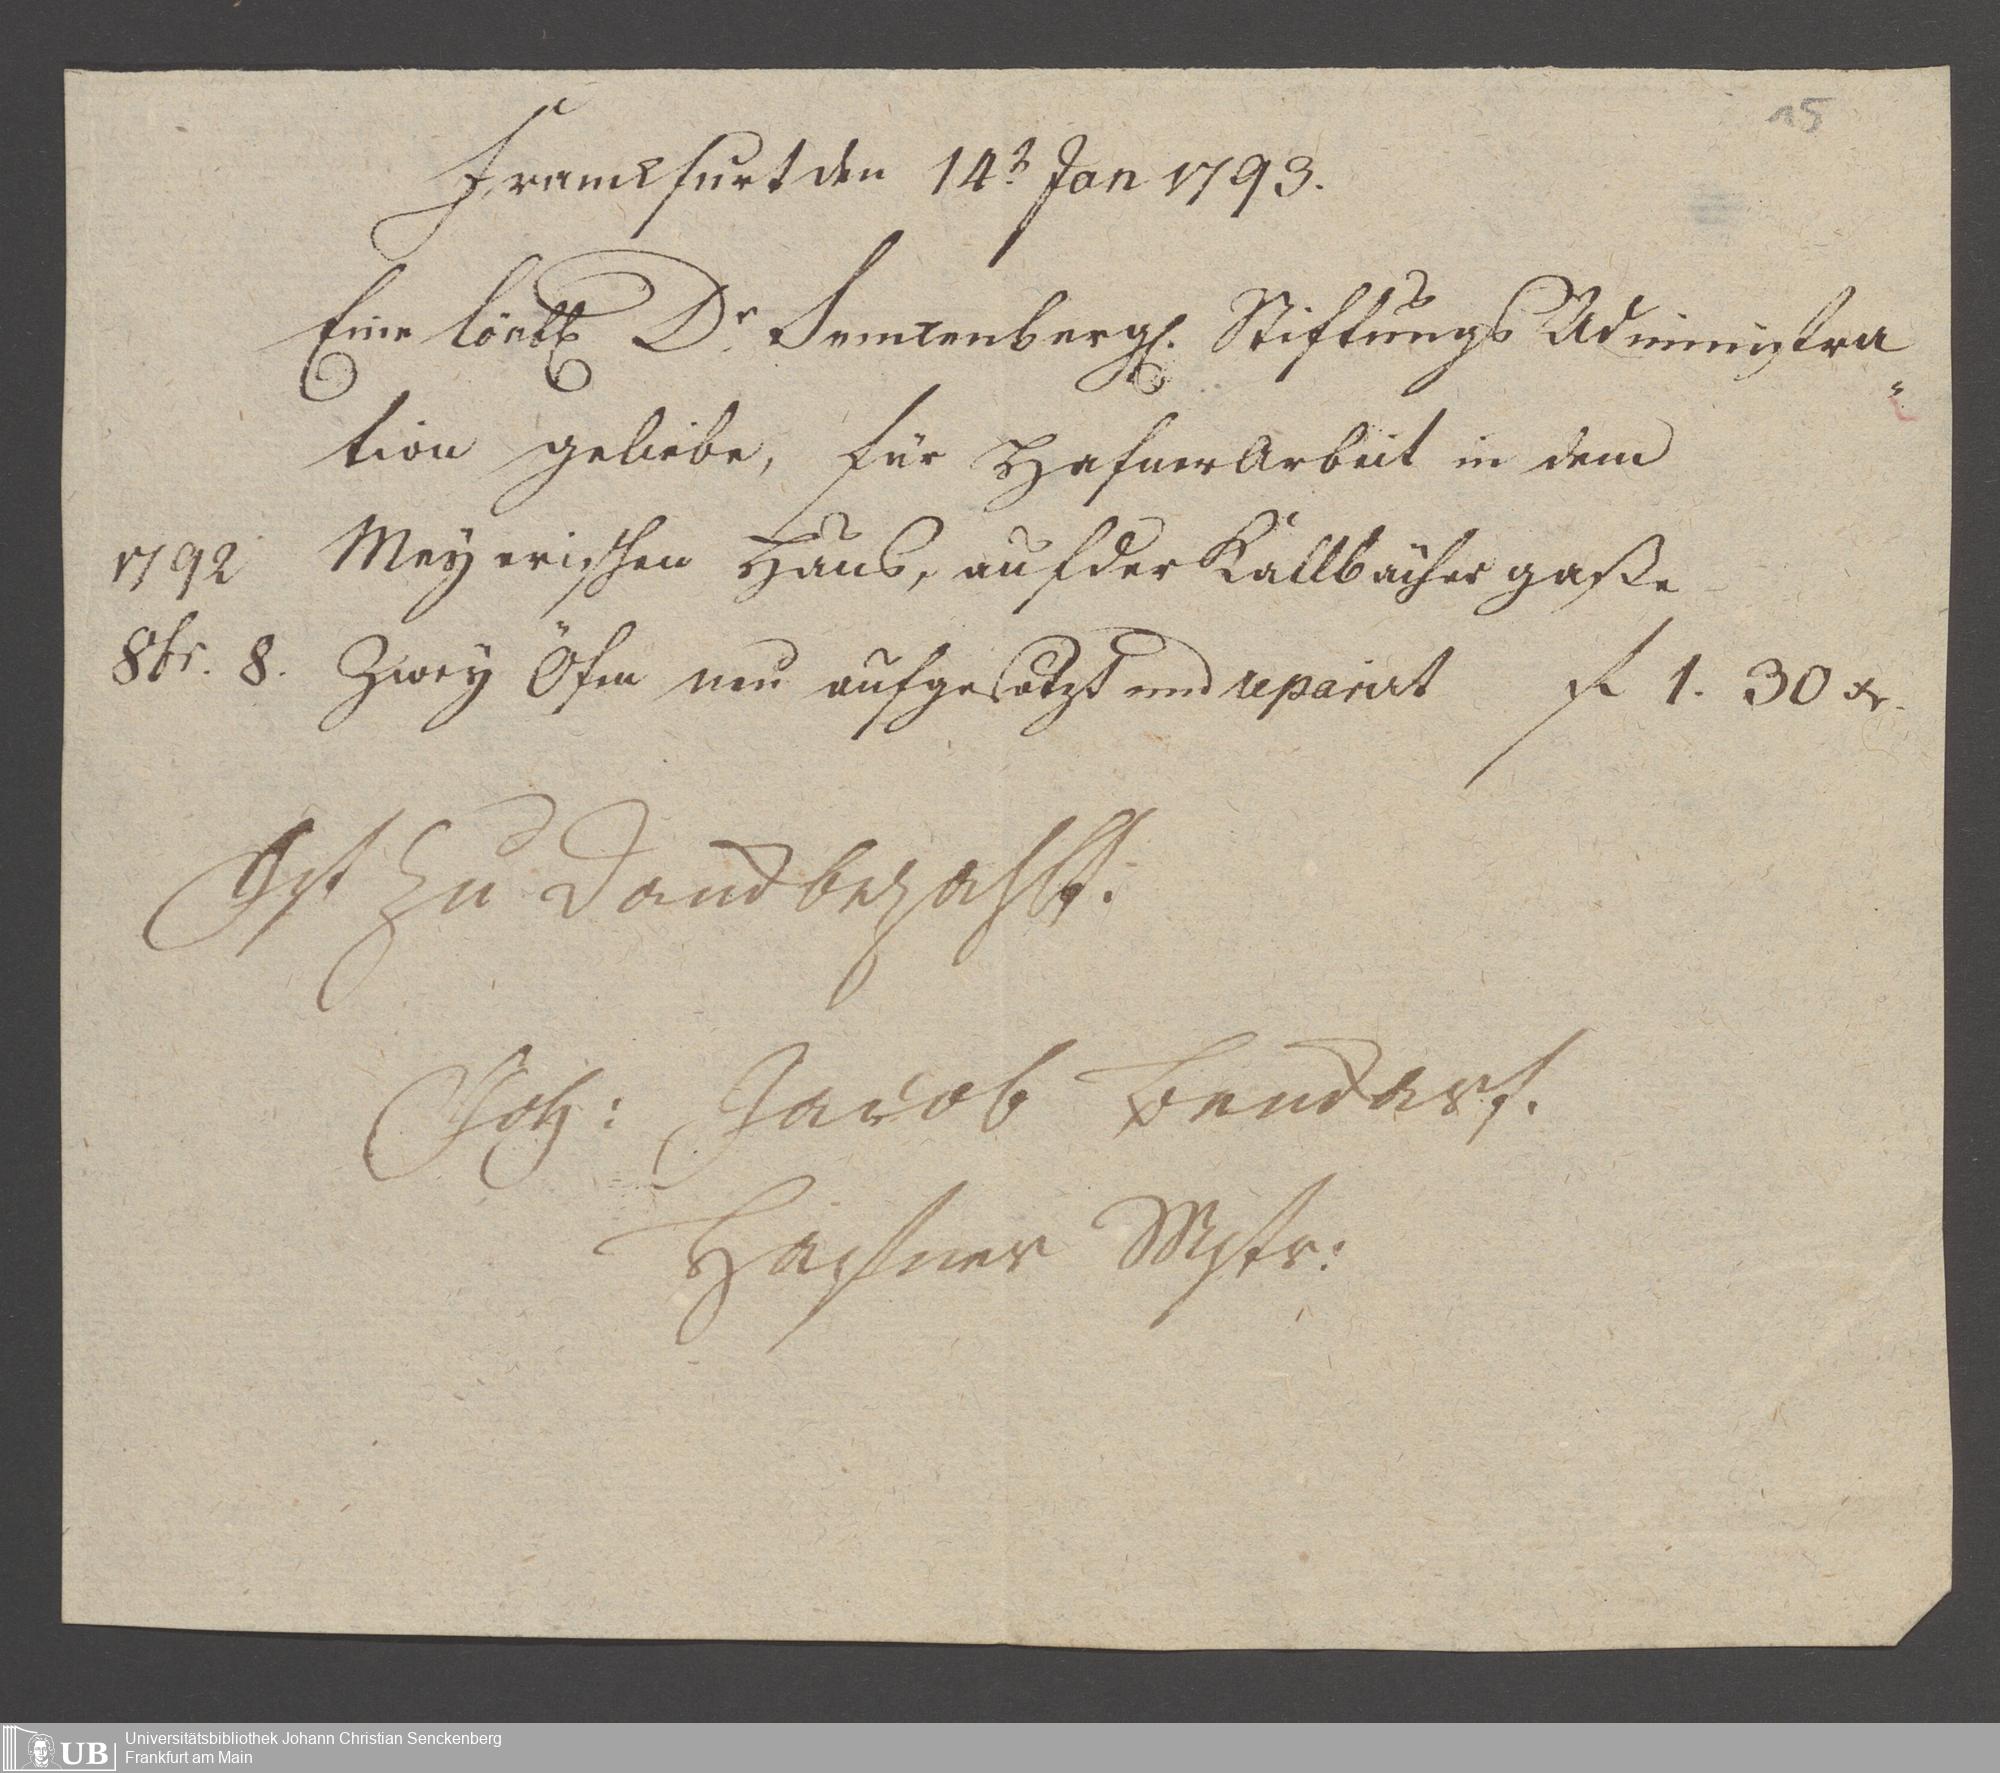 15
Franckfurt den 14t Jan 1793.
Eine löbl Dr. Senckenbergl. Stiftungs Administra
tion geliebe, für Hafner Arbeit in dem
1792 Meyerischen Haus, auf der Kallbächer gaße
8br. 8. Zwey Öfen neu aufgesetzt und reparirt f 1. 30 xr.
Ist zu Danck bezahlt.
Joh: Jacob
Hafner Mstr:
UB Universitätsbibliothek Johann Christian Senckenberg
Frankfurt am Main